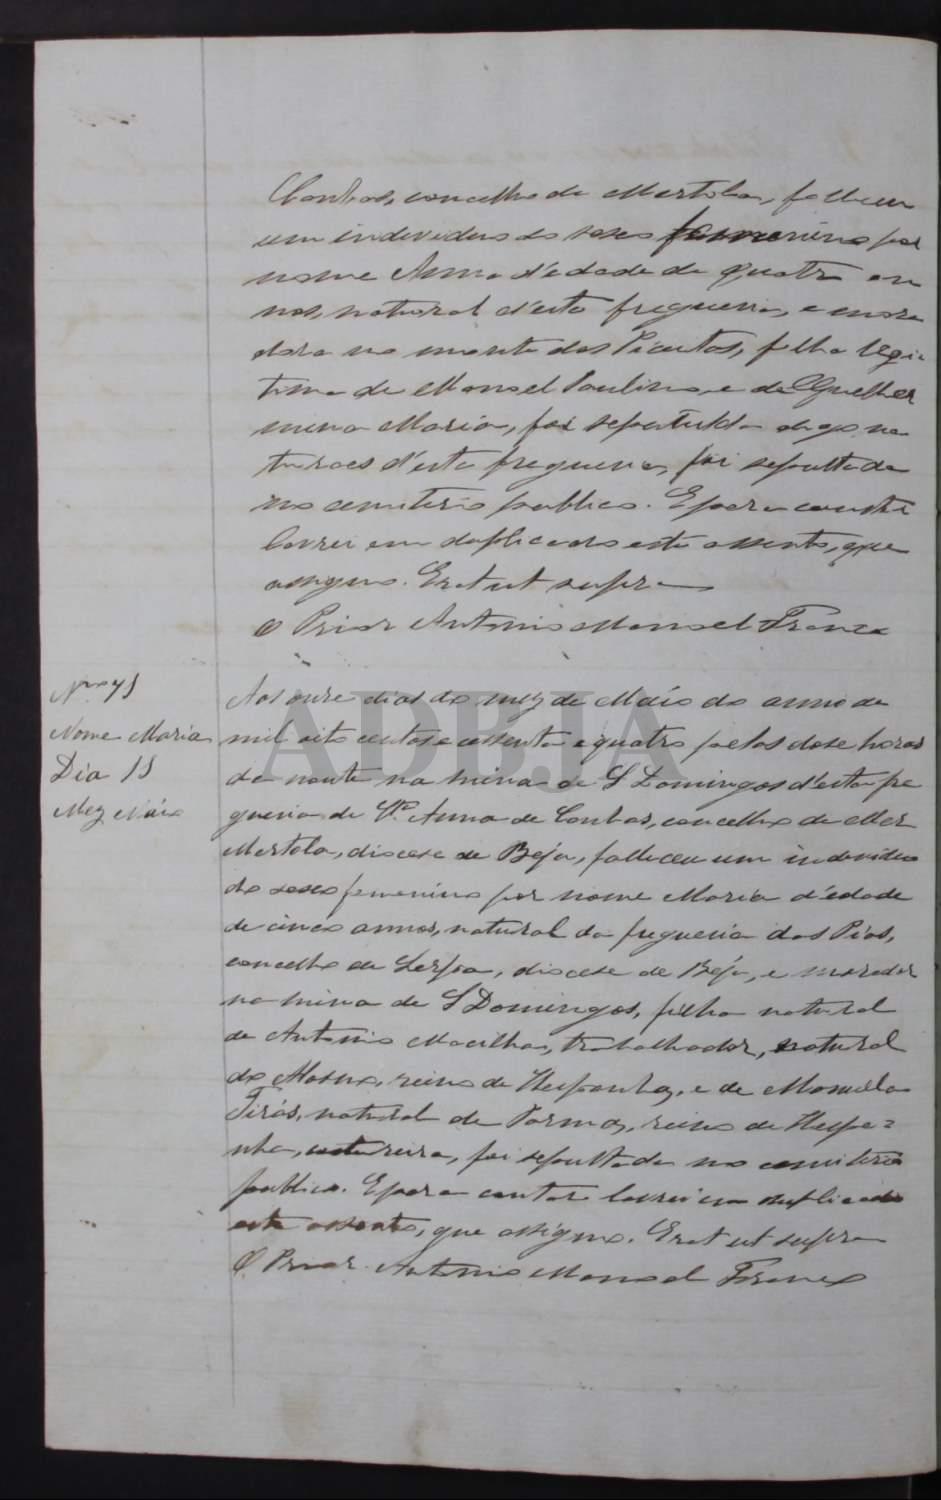 Cambas, concelho de Mertola, falleceu
um individuo do sexo femenino por
nome Anna d'edade de quatro an
nos, natural d'esta freguesia, e mora
dora no monte dos Picoitos, filha legi
tima de Manoel Paulino, e de Guelher
mina Maria,
turaes d'esta freguesia, foi sepultada
no cemiterio publico. E para constar
lavrei em duplicado este assento, que
assigno. Erat ut supra
O Prior Antonio Manoel Franco
Nome Maria
Dia 11
Mez Maio
Aos onze dias do mez de Maio do anno de
mil oito centos e sessenta e quatro pelas dose horas
da noute na mina de S Domingos d'esta fre
guesia de Sta. Anna de Cambas, concelho de Mer
Mertola, diocese de Beja, falleceu um individuo
do sexo femenino por nome Maria d'edade
de cinco annos, natural da freguesia dos Pias,
concelho de Serpa, diocese de Beja, e morador
na mina de S Domingos, filha natural
de Antonio, trabalhador, natural
do, reino de Hespanha, e de Manuela
natural de, reino de Hespa=
nha, foi sepultada no cemiterio
publico. E para constar lavrei em duplicado
este assento, que assigno. Erat ut supra
O Prior Antonio Manoel Franco
ADBJA